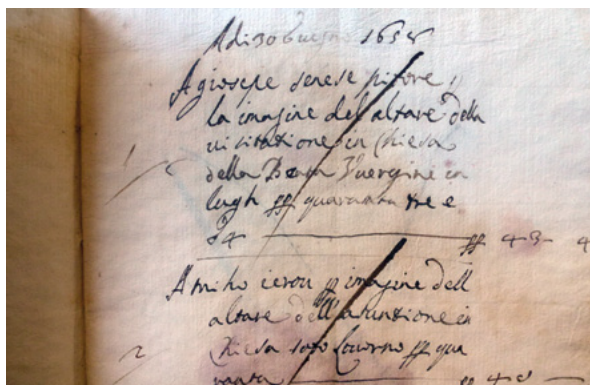 Adi 30 Giugno 1658
A giosepe senese pitore
la imagine del altare della
uisitatione in Chiesa
della Beata Vuergine in
lugh ff quaranta tre e
ff 43 - 4
A miho ierou imagine dell
altare dell asuntione in
Chiesa soto Locarno ff qua
ranta ff 48
1
2